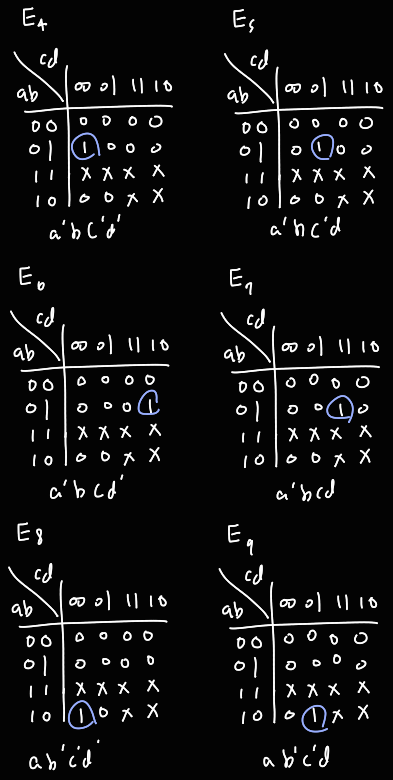 E4
cd
ab 00 01 11 10
00 0 0 0 0
01 1 0 0 0
11 x x x x
10 0 0 x x
a'bc'd'
E5
cd
ab 00 01 11 10
00 0 0 0 0
01 0 1 0 0
11 x x x x
10 0 0 x x
a'bc'd
E6
cd
ab 00 01 11 10
00 0 0 0 0
01 0 0 0 1
11 x x x x
10 0 0 x x
a'bcd'
E7
cd
ab 00 01 11 10
00 0 0 0 0
01 0 0 1 0
11 x x x x
10 0 0 x x
a'bcd
E8
cd
ab 00 01 11 10
00 0 0 0 0
01 0 0 0 0
11 x x x x
10 1 0 x x
ab'c'd'
E9
cd
ab 00 01 11 10
00 0 0 0 0
01 0 0 0 0
11 x x x x
10 0 1 x x
ab'c'd